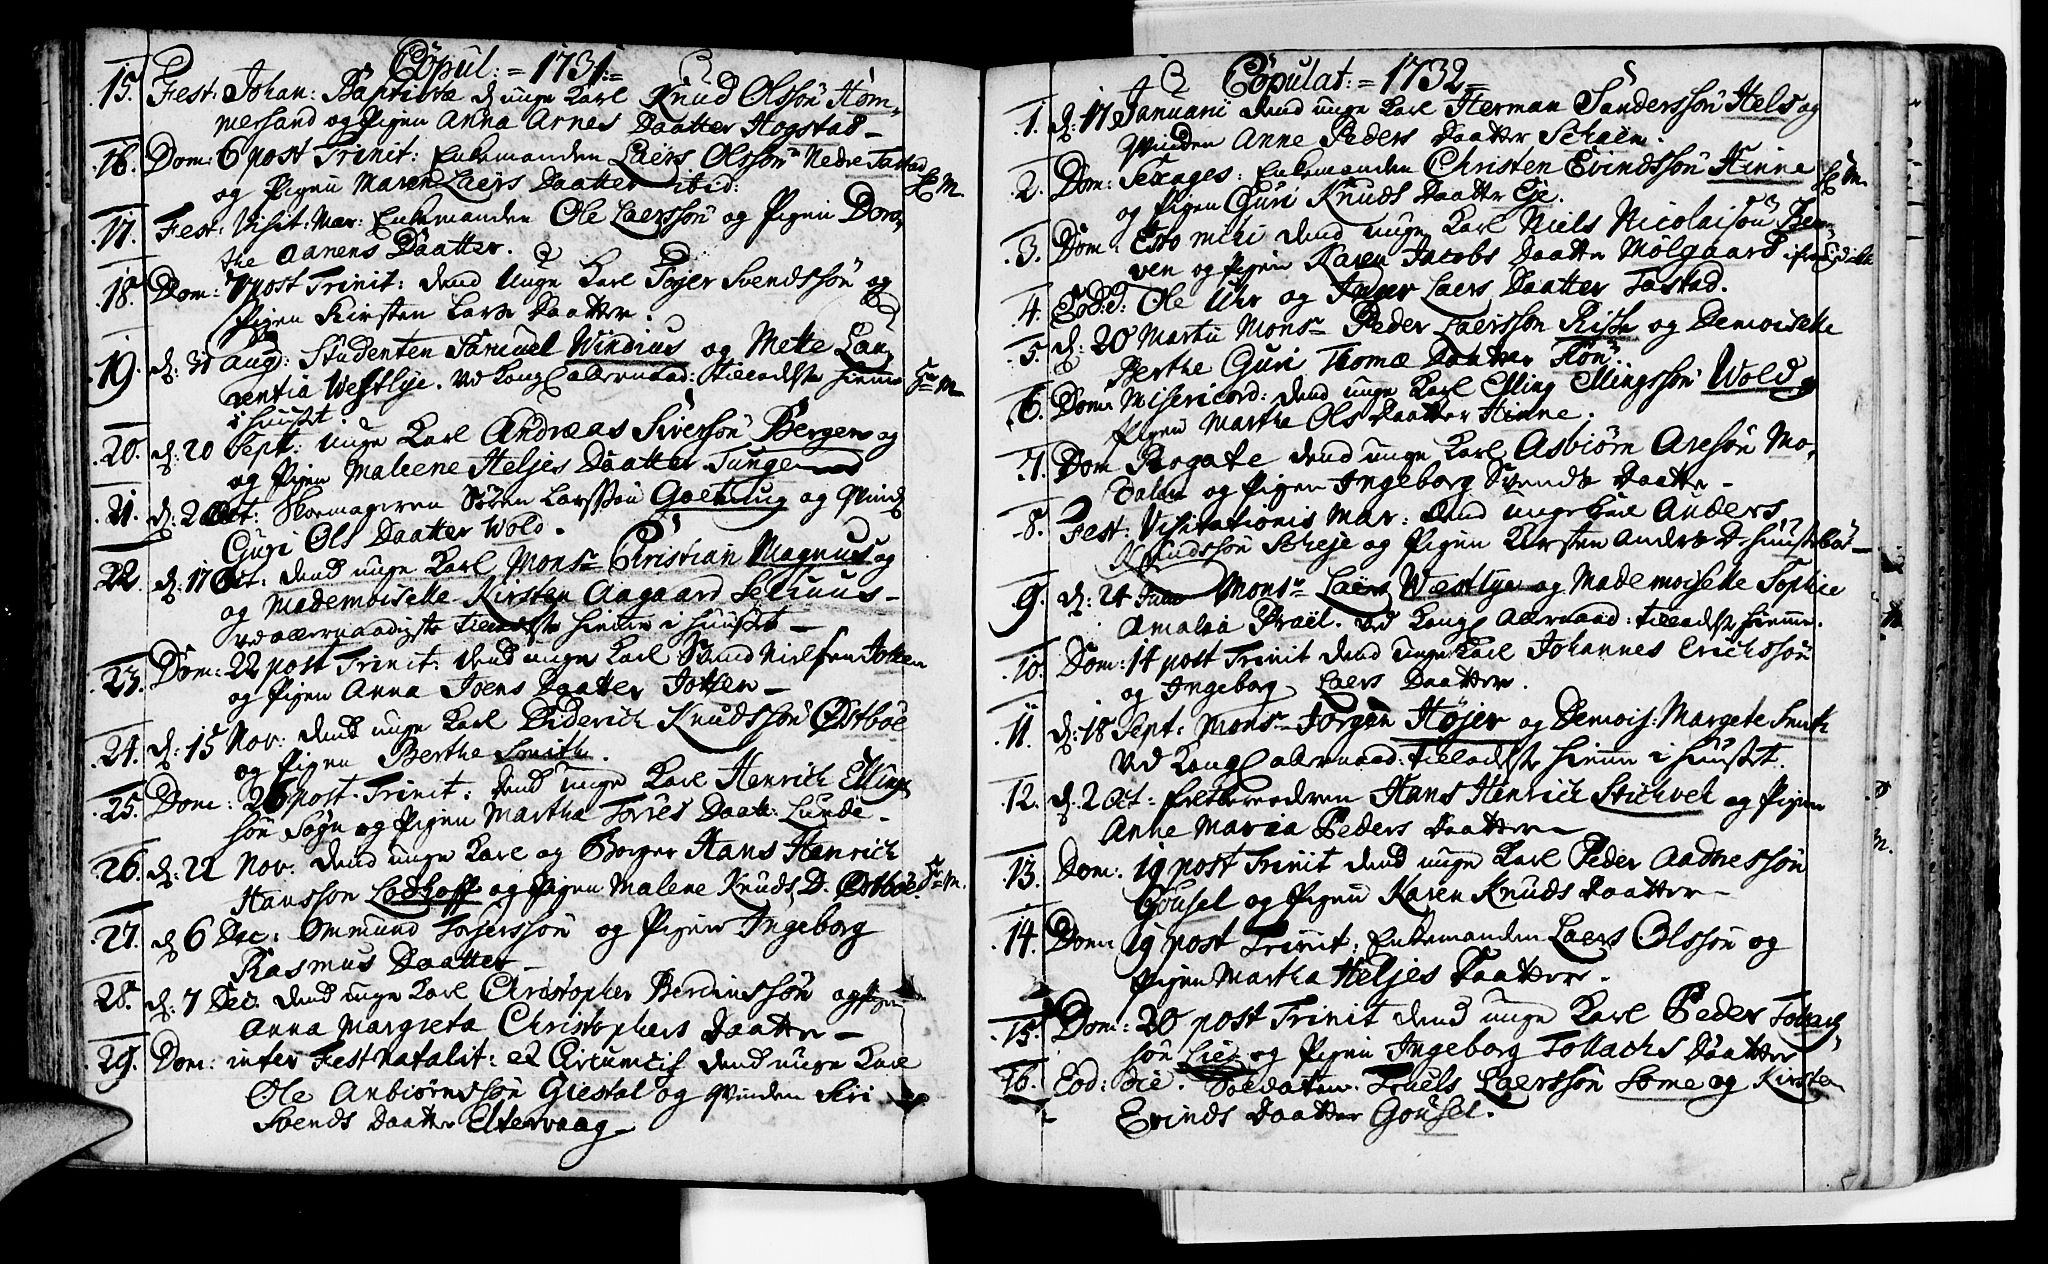 Copul: = 1731 =
15. Fest: Johan: Baptistæ d unge Karl Knud Olssøn Hom,
mersand og Pigen Anna Arnes Daatter Hogstad –
16. Dom: 6 post Trinit: Enkemanden Laers Olssøn Nedre Tastad
og Pigen Maren Laers Daatter ibid:
17. Fest: Visit: Mar: Enkemanden Ole Laerssøn og Pigen Doro,
the Aanens Daatter.
18. Dom: 7 post Trinit: dend Unge Karl Tojer Svendssøn og
Pigen Kirsten Lars Daatter.
19. d: 31 Aug: Studenten Samuel Windius og Mette Lau,
rentia Westlye. Ved Kongl allernaad: tilladelse hiemme
i huuset.
20. d: 20 Sept: unge Karl Andreas Sivers søn Bergen og
og Pigen Maleene Heljes Daatter Tunge
21. d: 2 Oct: Skoemageren Søren Larssøn Goetning og Quind
Guri Ols Daatter Wold.
22. d: 17 Oct: dend unge Karl Monsr Christian Magnus og
og Mademoiselle Kirsten Aagaard Selmus –
ved allernaadigste tilladelse hiemme i huuset –
23. Dom: 22 post Trinit: dend unge Karl Svend Nielsen Jotten
og Pigen Anna Joens Daatter Jotten –
24. d: 15 Nov. dend unge Karl Diderich Knudssøn Østbøe
og Pigen Berthe Smith.
25. Dom: 26 post Trinit: dend unge Karl Henrich Ellings
søn Søgn og Pigen Martha Torres Daatt: Lunde –
26. d: 22 Nov. dend unge Karl og Borger Hans Henrich
Hanssøn Lodhoff og Pigen Malene Knuds D. Østbøe
27. d 6 Dec: Ommund Torgerssøn og Pigen Ingeborg
Rasmus Daatter
28. d: 7 Dec. dend unge Karl Christopher Berdinssøn og Pigen
Anna Margreta Christophers Daatter –
29. Dom: inter Fest Natalit: et Circumcis dend unge Karl
Ole Anbiørnssøn Giestal og Quinden Siri
Svends Daatter Eltervaag –
Copulat: = 1732 =
1. d: 17 Januarii dend unge Karl Herman Sanderssøn Hels og
Quinden Anne Peders Daatter Schaen.
2. Dom: Sexages: Enkemanden Christen Evindssøn Hinne
og Pigen Guri Knuds Daatter Eje.
3. Dom: Esto mihi dend unge Karl Niels Nicolaisøn
ven og Pigen Karen Jacobs Daatter Mølgaard
4. Eod: d: Ole Uhr og Inger Laers Daatter Tastad.
5. d: 20 Martii Monsr Peder Laerssøn Risk og Demoiselle
Berthe Guri Thomæ Daatter
6. Dom: Misericord: dend unge Karl Elling Ellingssøn Wold og
Pigen Martha Ols Daatter Hinne.
7. Dom Rogate dend unge Karl Asbiørn Aresøn Mo,
og Pigen Ingeborg Svends Daatter –
8. Fest: Visitationis Mar: dend unge Karl Anders
Knudssøn Scheje og Pigen Kirsten Andr: D. Huusebøe –
9. d: 24 Julii Monsr Laers Westlye og Mademoiselle Sophie
Amalia Prael. Ved Kongl Allernaad: tilladelse hiemme.
10. Dom: 14 post Trinit dend unge Karl Johannes Erichssøn
og Ingeborg Laers Daatter.
11. d: 18 Sept: Monsr Jørgen Høјer og Demois: Margete Smith
Ved Kongl allernaad: tilladelse hiemme i huuset.
12. d. 2 Oct: Hans Henrich Stichvel og Pigen
Anne Maria Peders Daatter –
13. Dom: 19 post Trinit dend unge Karl Peder Aadnessøn
Gousel og Pigen Karen Knuds Daatter –
14. Dom: 19 post Trinit: Enkemanden Laers Olssøn og
Pigen Martha Heljes Daatter.
15. Dom: 20 post Trinit dend unge Karl Peder Tollach
søn Lier og Pigen Ingeborg Tollachs Daatter
16. Eod: die. Soldaten Truels Laerssøn Some og Kirsten
Evinds Daatter Gousel.